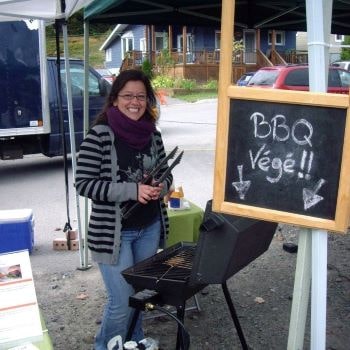 BBQ
Végé!!